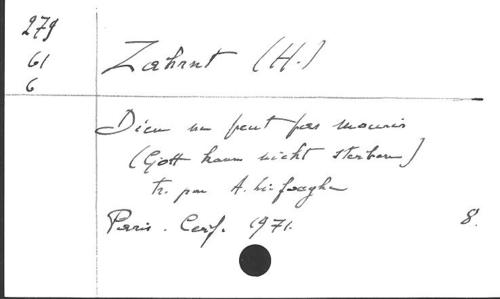 279
61
6
Zahrnt (H.)
Dieu ne peut pas mourir
(Gott kann nicht sterben)
tr. par A.
Paris. Cerf. 1971. 8.